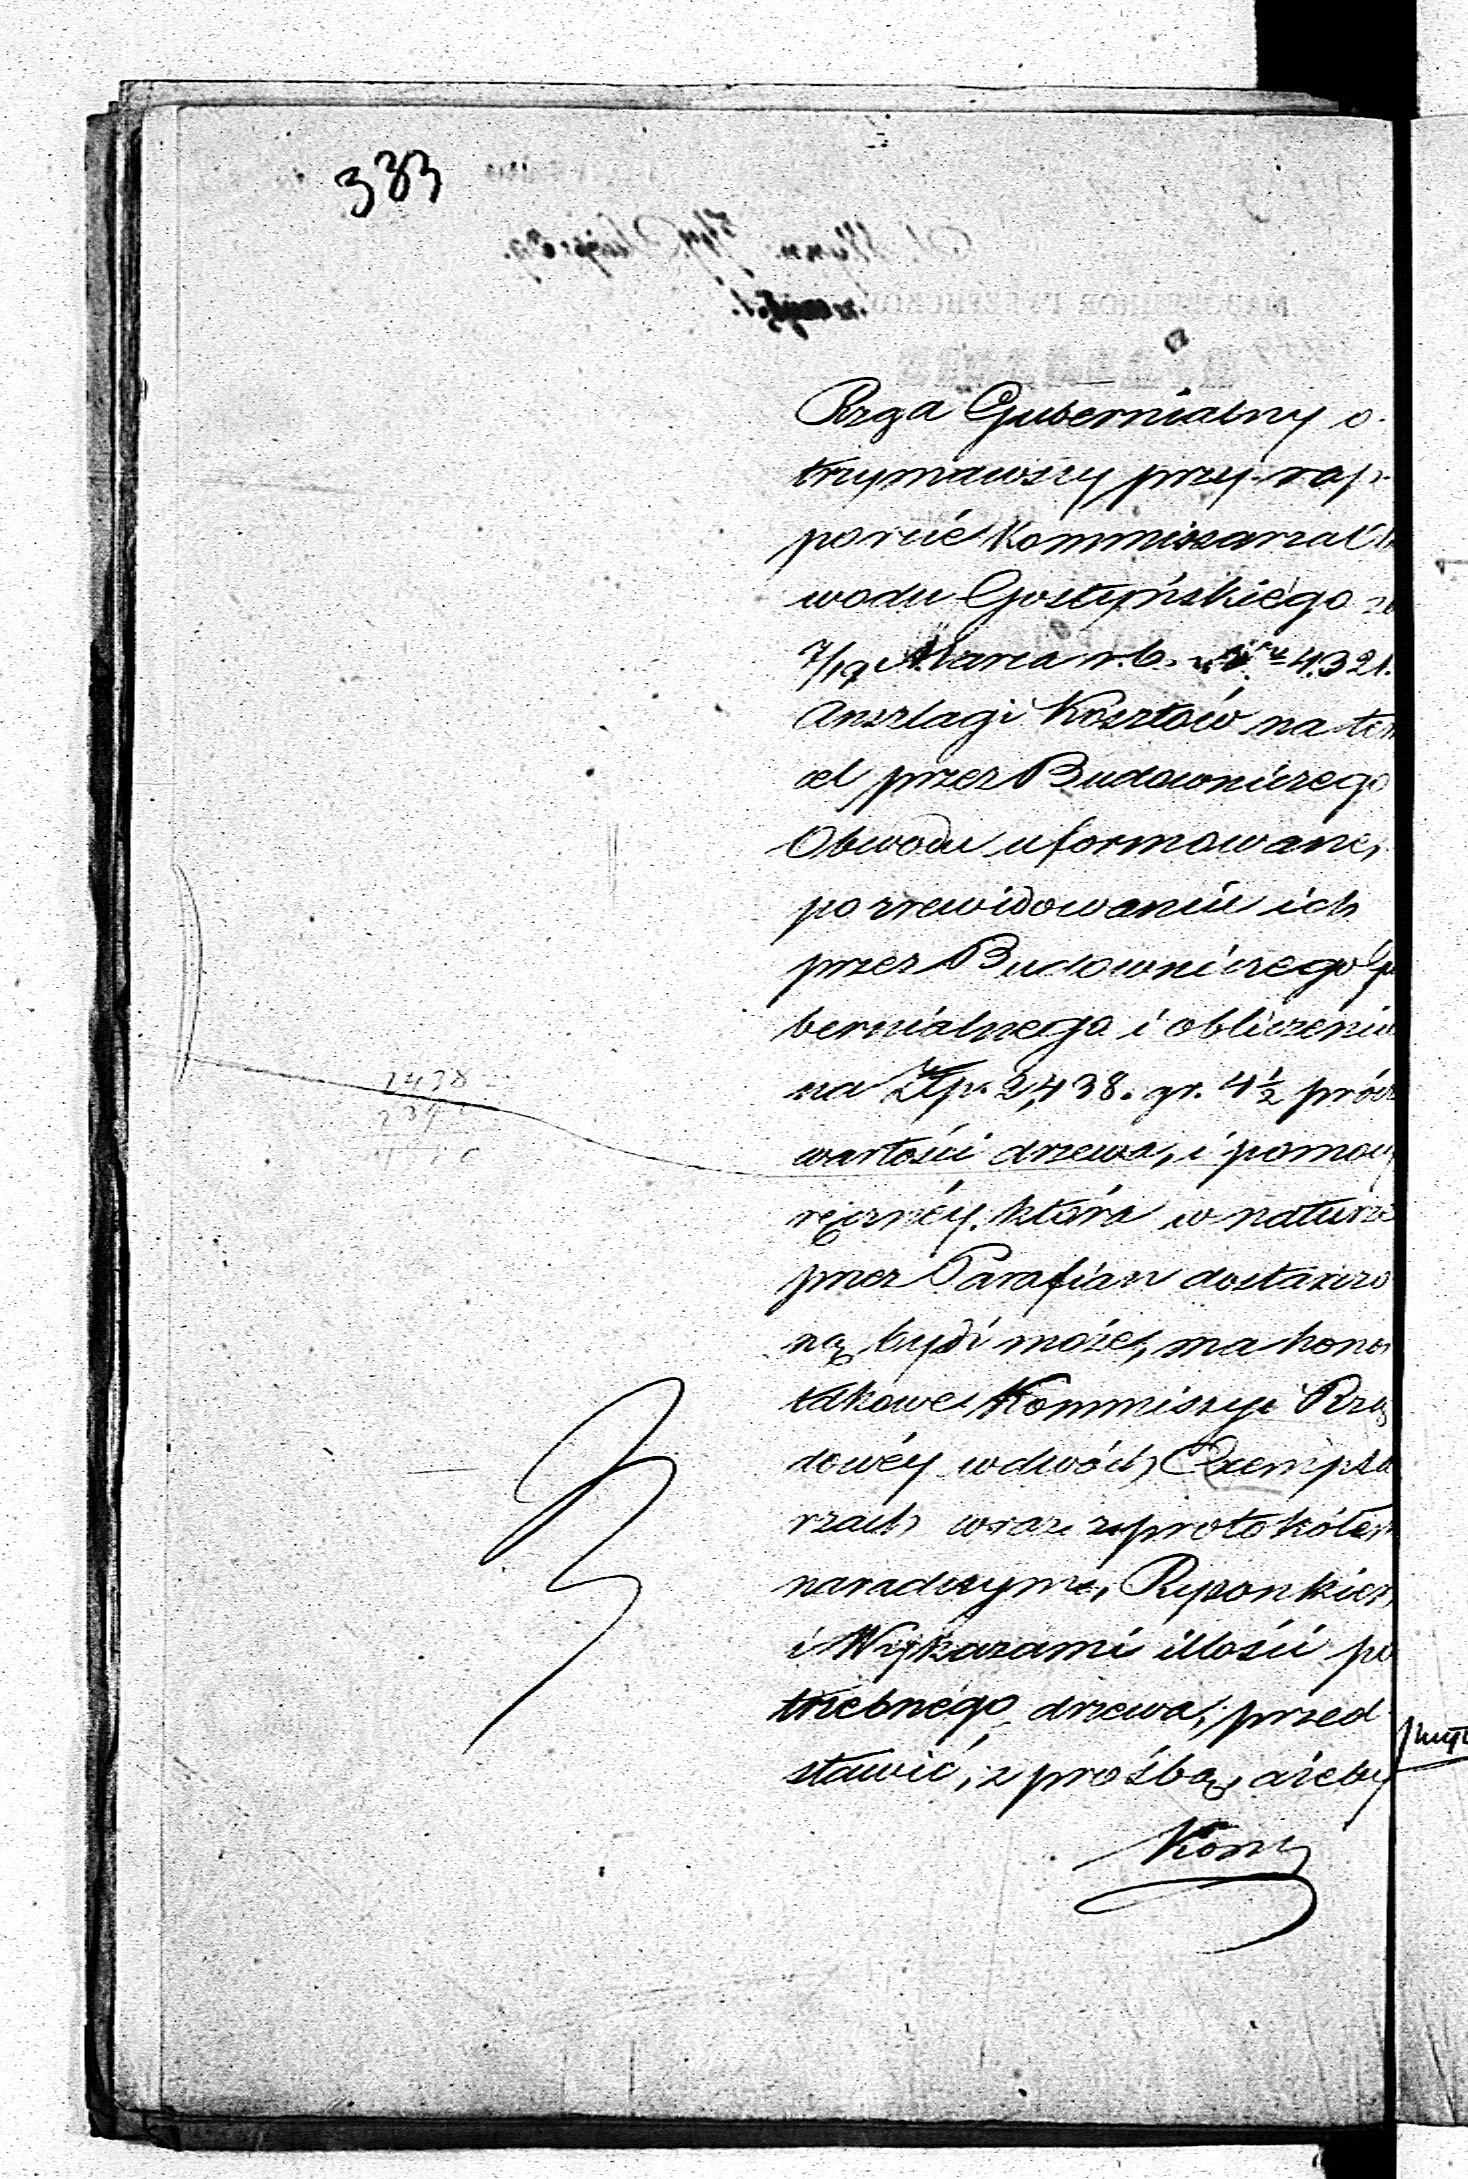 333
Rząd Gubernialny o-
trzymawszy przy rap-
porcie Kommissarza Ob
wodu Gostyńskiego z
7/19 Marca r. b. Nru 4321.
Anszlagi Kosztów na ten
cel przez Budowniczego
Obwodu uformowane,
po zrewidowaniu ich
przez Budowniczego Gu
bernialnego i obliczeniu
na Złp. 2,438. gr. 4½ prócz
wartości drzewa, i pomocy
ręcznéy, która w naturze
przez Parafian dostarczo
ną bydź może, ma honor
takowe Kommissyi Rzą
dowéy w dwóch Exempla
rzach wraz z protokółem
naradczym, Rysunkiem
i Wykazami illości po
trzebnego drzewa, przed-
stawić, z prośbą, ażeby
2438